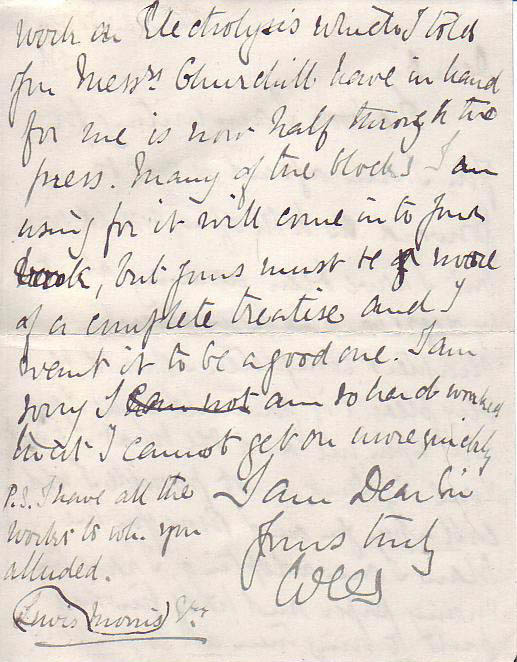 work on Electrolysis which I told
you Messrs Churchill have in hand
for me is now half through the
press. Many of the blocks I am
using for it will come in to your
book, but yours must be more
of a complete treatise and I
want it to be a good one. I am
sorry I am not am so hard worked
that I cannot get on more quickly
I am Dear Sir
Yours truly
P.S. I have all the
works to wh. you
alluded.
Lewis Morris Esq